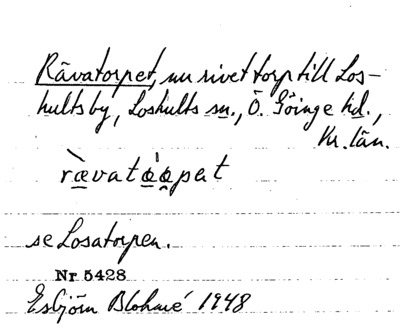 Råvatorpet, nu rivet torp till Los-
hults by, Loshults sn., Ö. Göinge hd.,
Kr. län.
se Losatorpen.
Nr 5428
Esbjörn Blohmé 1948